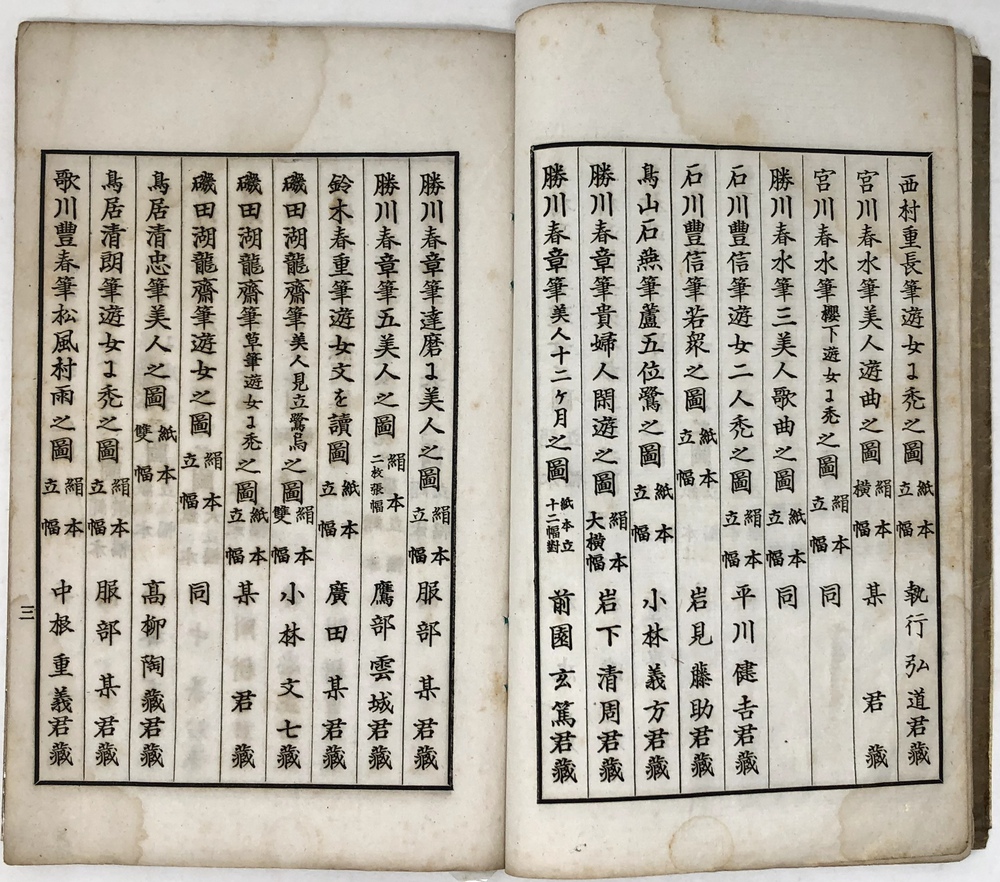 西村重長筆遊女ニ禿之圖 紙本立幅 執行弘道君藏
宮川春水筆美人遊曲之圖 絹本橫幅 某君藏
宮川春水筆櫻下遊女ニ禿之圖 絹本立幅 同
勝川春水筆三美人歌曲之圖 紙本立幅 同
石川豐信筆遊女二人禿之圖 絹本立幅 平川健吉君藏
石川豐信筆若衆之圖 紙本立幅 岩見藤助君藏
鳥山石燕筆蘆五位鷺之圖 紙本立幅 小林義方君藏
勝川春章筆貴婦人閑遊之圖 絹本大橫幅 岩下清周君藏
勝川春章筆美人十二ヶ月之圖 紙本立十二幅對 前園玄篤君藏
勝川春章筆達磨ニ美人之圖 絹本立幅 服部某君藏
勝川春章筆五美人之圖 絹本二枚張幅 鷹部雲城君藏
鈴木春重筆遊女文を讀圖 紙本立幅 廣田某君藏
磯田湖龍齋筆美人見立鷺烏之圖 絹本雙幅 小林文七藏
磯田湖龍齋筆草筆遊女ニ禿之圖 紙本立幅 某君藏
磯田湖龍齋筆遊女之圖 絹本立幅 同
鳥居清忠筆美人之圖 紙本雙幅 高柳陶藏君藏
鳥居清朗筆遊女ニ禿之圖 絹本立幅 服部某君藏
歌川豐春筆松風村雨之圖 絹本立幅 中根重義君藏
三